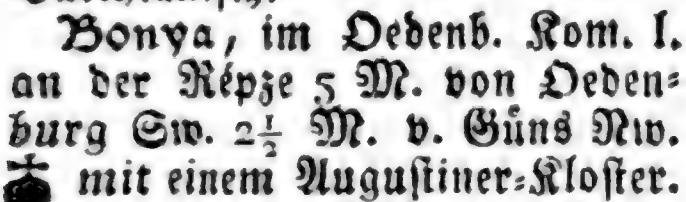 Bonya, im Oedenb. Kom. l.
an der Répze 5 M. von Oeden-
burg Sw. 2½ M. v. Güns Nw.
mit einem Augustiner-Kloster.